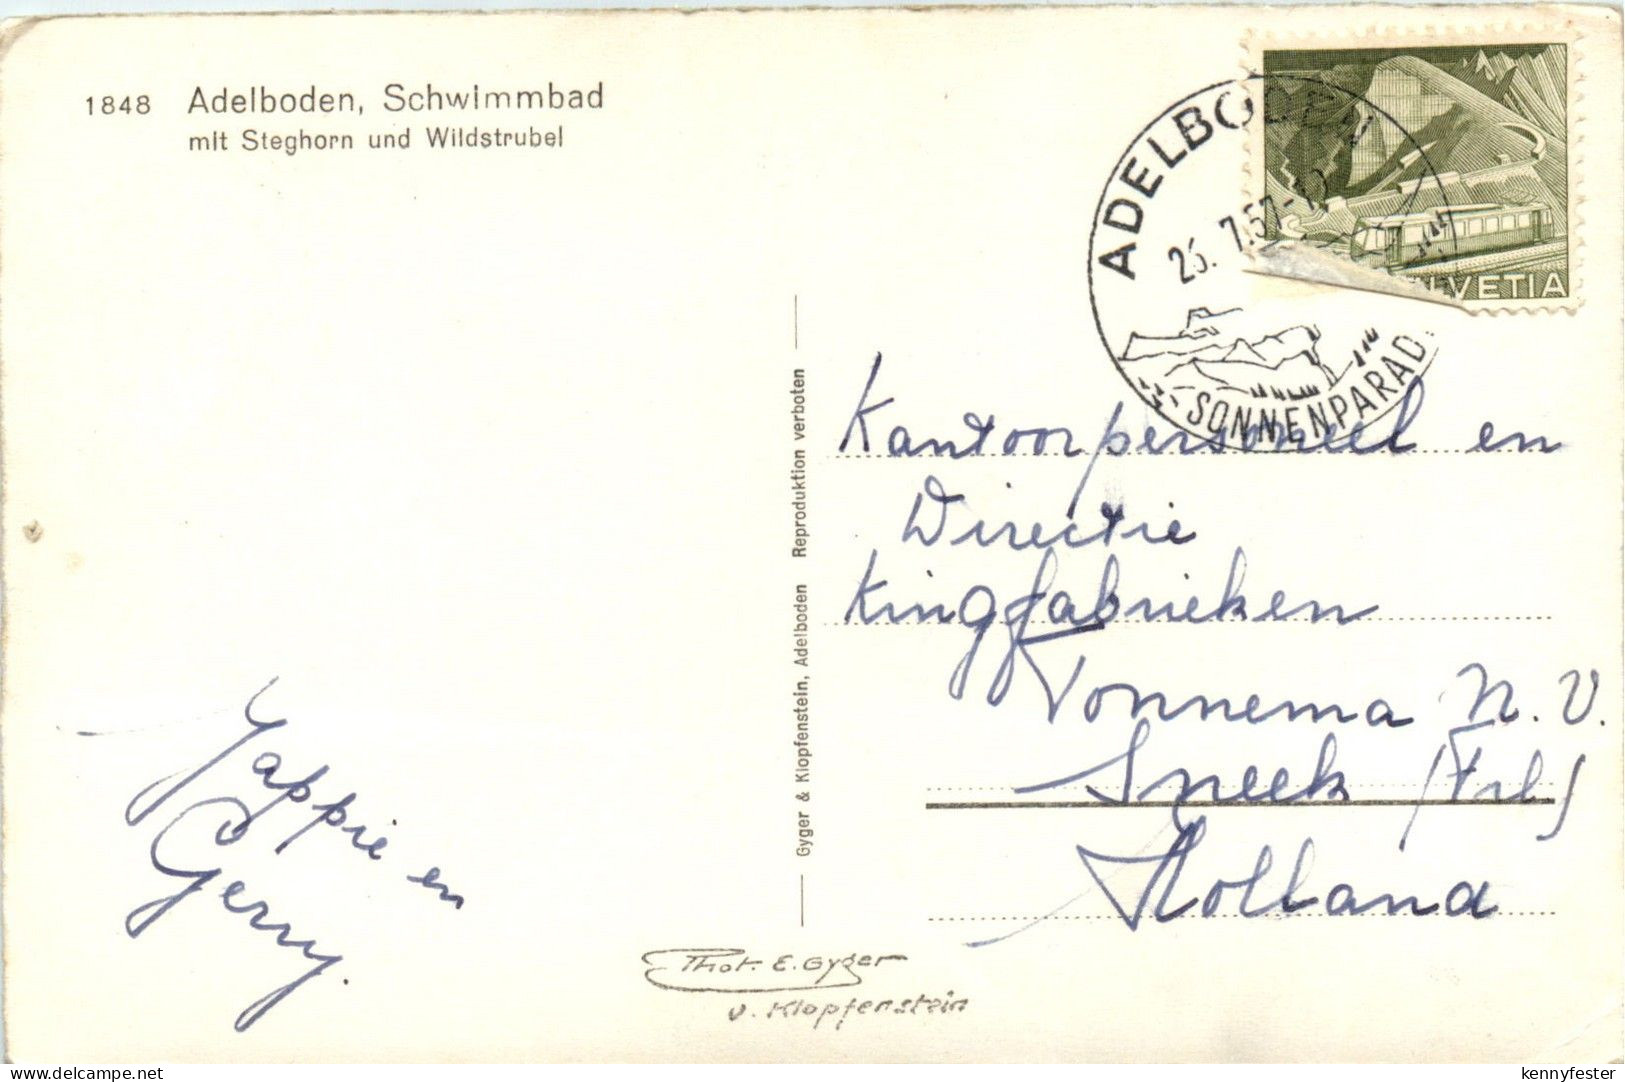 1848 Adelboden, Schwimmbad
mit Steghorn und Wildstrubel
ADELBODEN
26. 7.57-12
SONNENPARAD
HELVETIA
Kantoorpersoneel en
Directie
Kingfabrieken
Tonnema N.V.
Sneek (Frl)
Holland
Jappie en
Gerry.
Gyger & Klopfenstein, Adelboden Reproduktion verboten
Phot. E. Gyger
u. Klopfenstein
delcampe.net
kennyfester